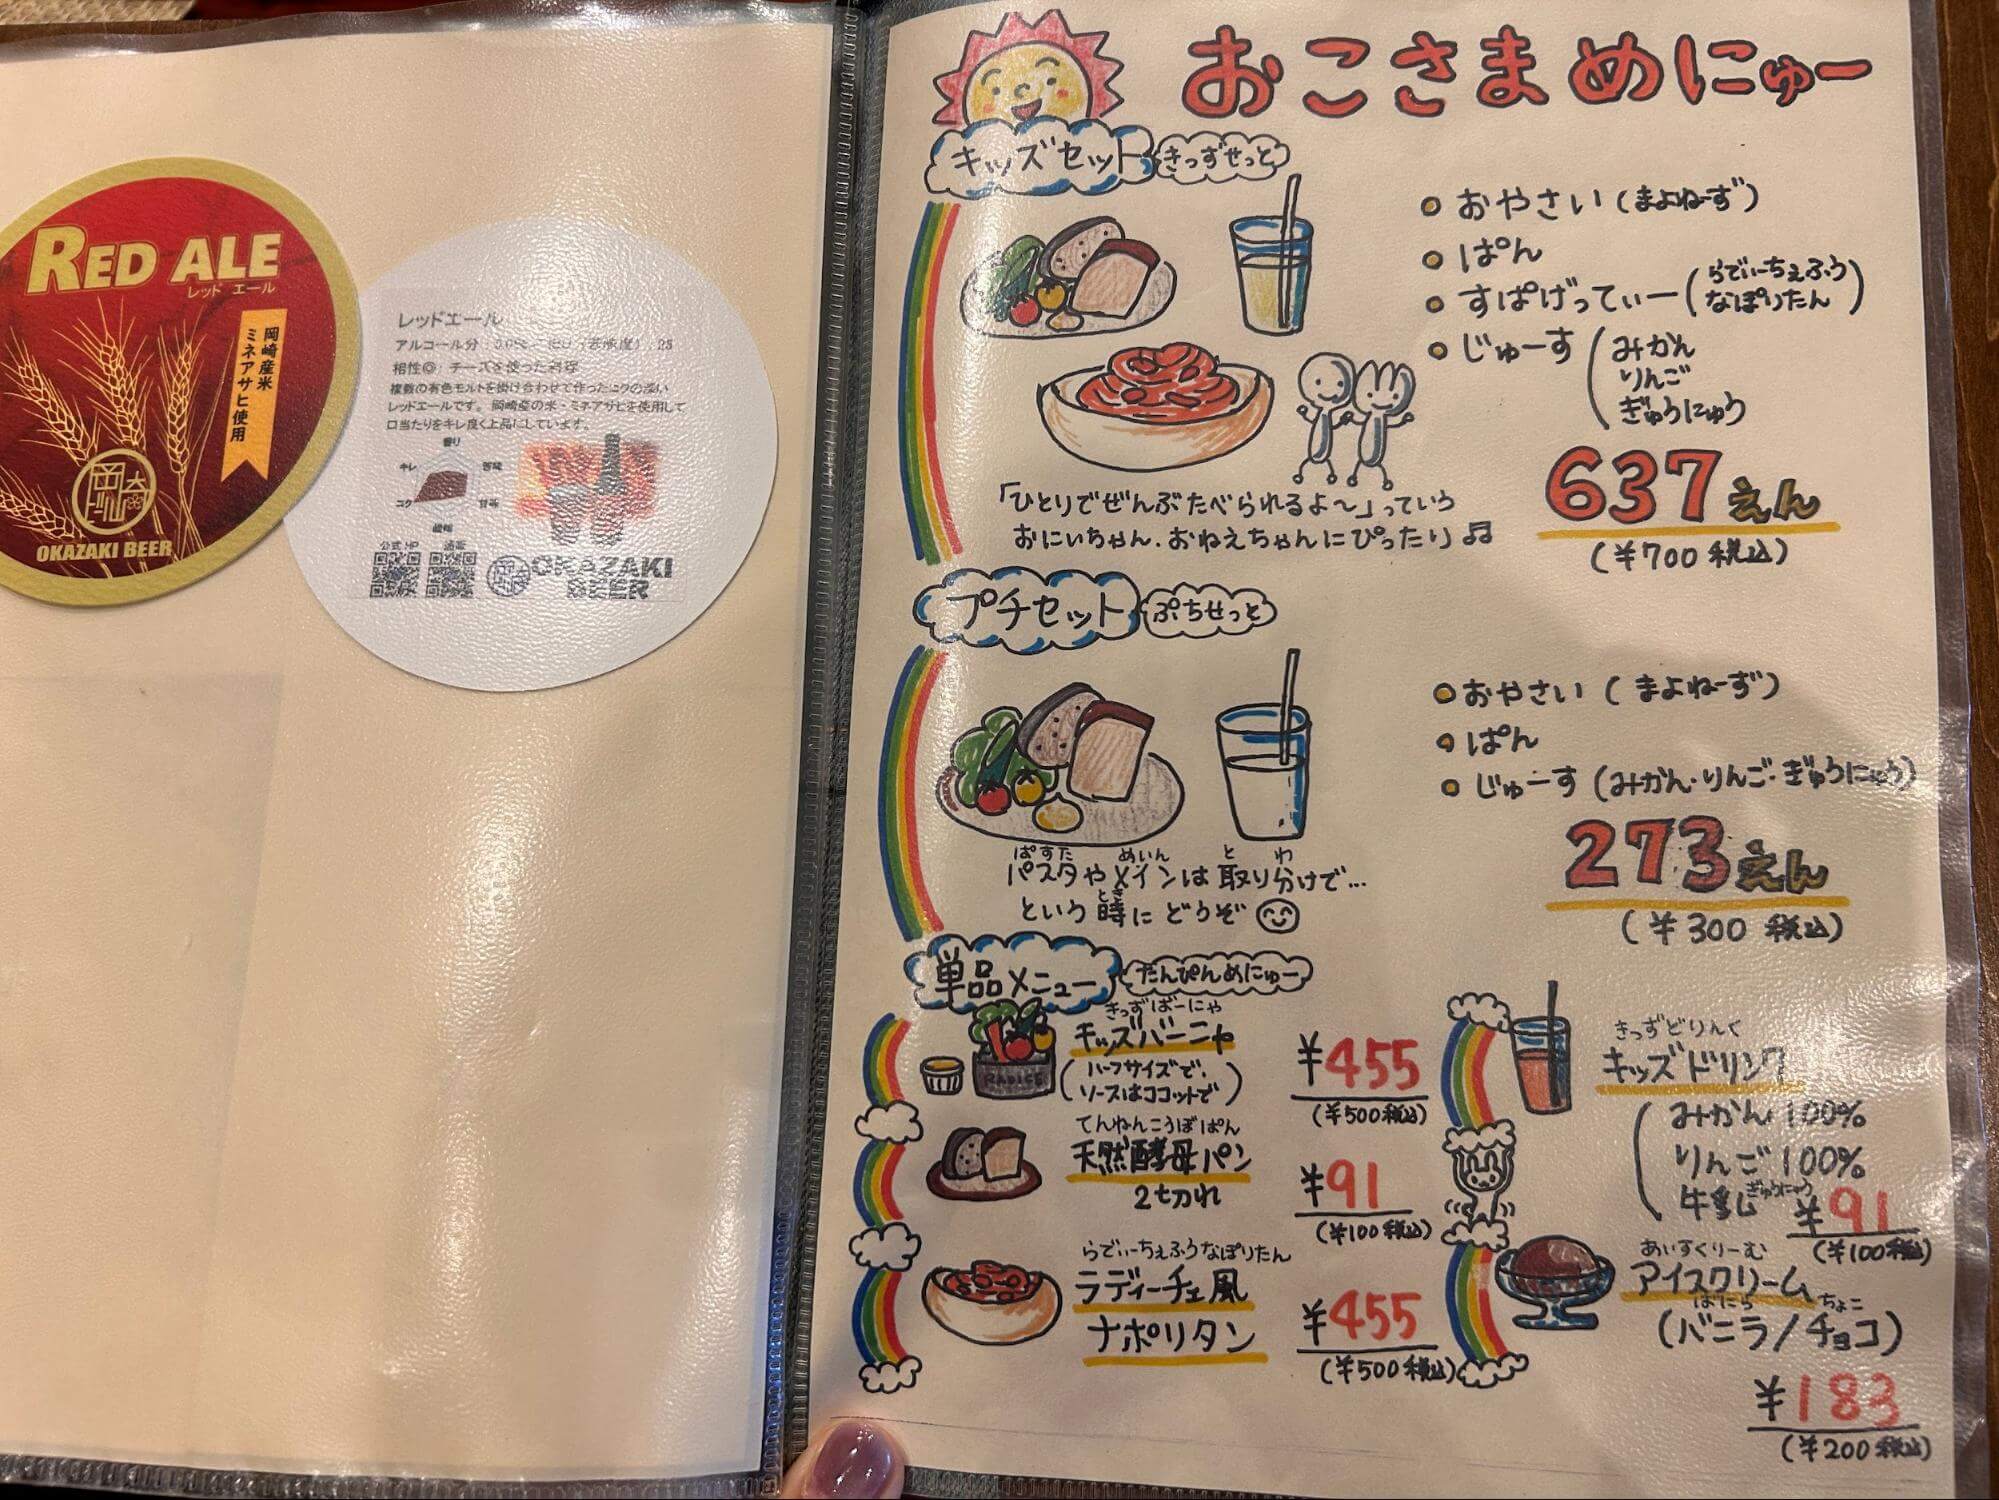 RED ALE
レッド エール
岡崎産米
ミネアサヒ使用
OKAZAKI BEER
レッドエール
アルコール分
相性◎ チーズを使った料理
複数の有色モルトを掛け合わせて作ったコクの深い
レッドエールです。岡崎産の米・ミネアサヒを使用して
口当たりをキレ良く上品にしています。
香り
キレ
苦味
コク
甘味
酸味
公式HP
通販
OKAZAKI
BEER
おこさまめにゅー
キッズセット
きっずせっと
おやさい(まよねーず)
ぱん
すぱげってぃー(らでぃーちぇふう
なぽりたん)
じゅーす(みかん
りんご
ぎゅうにゅう
637えん
(¥700 税込)
「ひとりでぜんぶたべられるよ〜」っていう
おにいちゃん、おねえちゃんにぴったり♫
プチセット
ぷちせっと
おやさい(まよねーず)
ぱん
じゅーす(みかん・りんご・ぎゅうにゅう)
273えん
(¥300 税込)
ぱすた めいん と わ
パスタやメインは取り分けで…
とき
という時にどうぞ
単品メニュー
たんぴんめにゅー
きっずばーにゃ
キッズバーニャ
(ハーフサイズで、
ソースはココットで)
RADICE
¥455
(¥500税込)
てんねんこうぼぱん
天然酵母パン
2切れ
¥91
(¥100税込)
らでぃーちぇふうなぽりたん
ラディーチェ風
ナポリタン
¥455
(¥500税込)
きっずどりんく
キッズドリンク
(みかん100%
りんご100%
ぎゅうにゅう
牛乳
¥91
(¥100税込)
あいすくりーむ
アイスクリーム
ばにら ちょこ
(バニラ/チョコ)
¥183
(¥200税込)